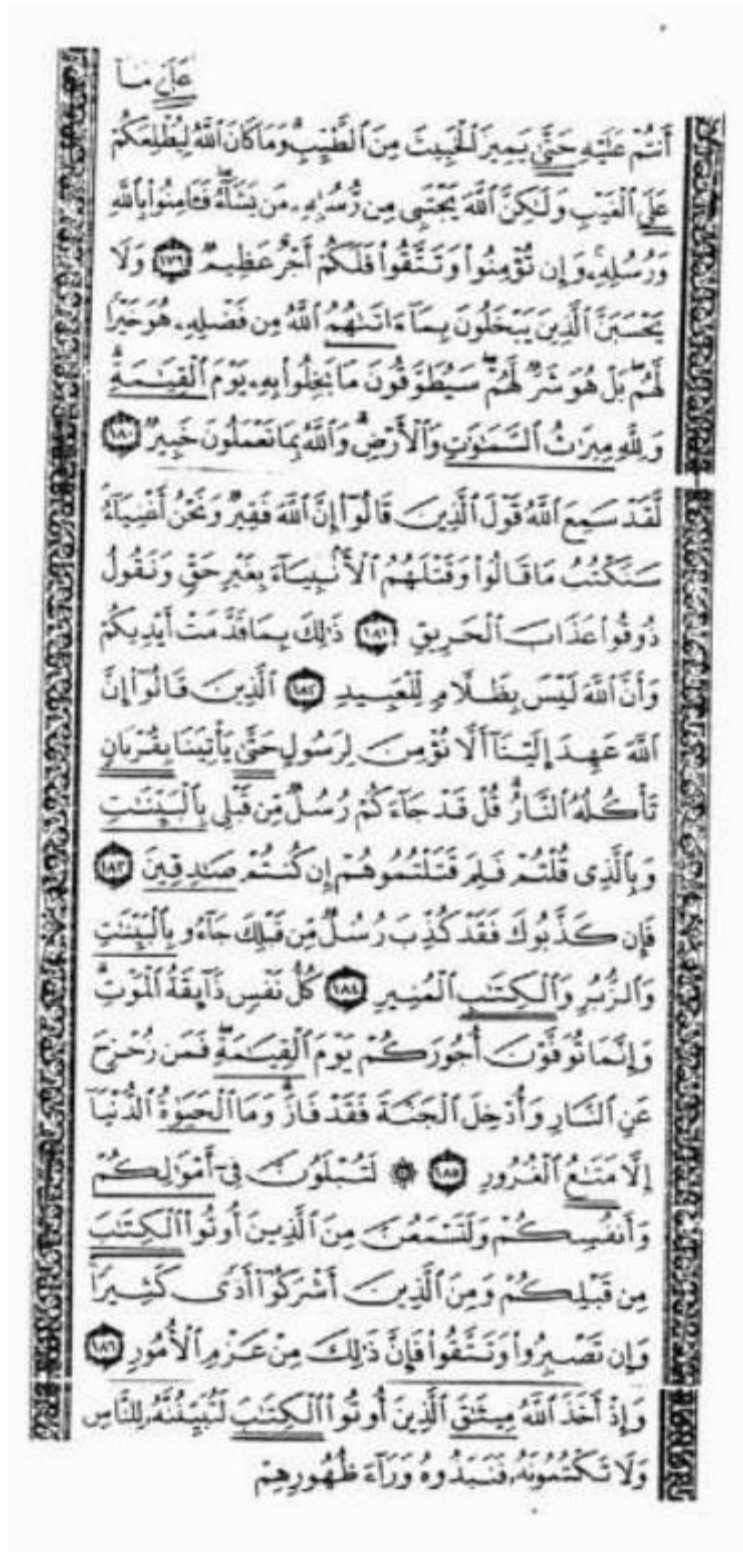 عَلَىٰ مَآ
أَنتُمْ عَلَيْهِ حَتَّىٰ يَمِيزَ ٱلْخَبِيثَ مِنَ ٱلطَّيِّبِ ۗ وَمَا كَانَ ٱللَّهُ لِيُطْلِعَكُمْ
عَلَى ٱلْغَيْبِ وَلَٰكِنَّ ٱللَّهَ يَجْتَبِى مِن رُّسُلِهِۦ مَن يَشَآءُ ۖ فَـَٔامِنُوا۟ بِٱللَّهِ
وَرُسُلِهِۦ ۚ وَإِن تُؤْمِنُوا۟ وَتَتَّقُوا۟ فَلَكُمْ أَجْرٌ عَظِيمٌ ١٧٩ وَلَا
يَحْسَبَنَّ ٱلَّذِينَ يَبْخَلُونَ بِمَآ ءَاتَىٰهُمُ ٱللَّهُ مِن فَضْلِهِۦ هُوَ خَيْرًا
لَّهُم ۖ بَلْ هُوَ شَرٌّ لَّهُمْ ۖ سَيُطَوَّقُونَ مَا بَخِلُوا۟ بِهِۦ يَوْمَ ٱلْقِيَٰمَةِ ۗ
وَلِلَّهِ مِيرَٰثُ ٱلسَّمَٰوَٰتِ وَٱلْأَرْضِ ۗ وَٱللَّهُ بِمَا تَعْمَلُونَ خَبِيرٌ ١٨٠
لَّقَدْ سَمِعَ ٱللَّهُ قَوْلَ ٱلَّذِينَ قَالُوٓا۟ إِنَّ ٱللَّهَ فَقِيرٌ وَنَحْنُ أَغْنِيَآءُ ۘ
سَنَكْتُبُ مَا قَالُوا۟ وَقَتْلَهُمُ ٱلْأَنۢبِيَآءَ بِغَيْرِ حَقٍّ وَنَقُولُ
ذُوقُوا۟ عَذَابَ ٱلْحَرِيقِ ١٨١ ذَٰلِكَ بِمَا قَدَّمَتْ أَيْدِيكُمْ
وَأَنَّ ٱللَّهَ لَيْسَ بِظَلَّامٍ لِّلْعَبِيدِ ١٨٢ ٱلَّذِينَ قَالُوٓا۟ إِنَّ
ٱللَّهَ عَهِدَ إِلَيْنَآ أَلَّا نُؤْمِنَ لِرَسُولٍ حَتَّىٰ يَأْتِيَنَا بِقُرْبَانٍ
تَأْكُلُهُ ٱلنَّارُ ۗ قُلْ قَدْ جَآءَكُمْ رُسُلٌ مِّن قَبْلِى بِٱلْبَيِّنَٰتِ
وَبِٱلَّذِى قُلْتُمْ فَلِمَ قَتَلْتُمُوهُمْ إِن كُنتُمْ صَٰدِقِينَ ١٨٣
فَإِن كَذَّبُوكَ فَقَدْ كُذِّبَ رُسُلٌ مِّن قَبْلِكَ جَآءُو بِٱلْبَيِّنَٰتِ
وَٱلزُّبُرِ وَٱلْكِتَٰبِ ٱلْمُنِيرِ ١٨٤ كُلُّ نَفْسٍ ذَآئِقَةُ ٱلْمَوْتِ ۗ
وَإِنَّمَا تُوَفَّوْنَ أُجُورَكُمْ يَوْمَ ٱلْقِيَٰمَةِ ۖ فَمَن زُحْزِحَ
عَنِ ٱلنَّارِ وَأُدْخِلَ ٱلْجَنَّةَ فَقَدْ فَازَ ۗ وَمَا ٱلْحَيَوٰةُ ٱلدُّنْيَآ
إِلَّا مَتَٰعُ ٱلْغُرُورِ ١٨٥ ۞ لَتُبْلَوُنَّ فِىٓ أَمْوَٰلِكُمْ
وَأَنفُسِكُمْ وَلَتَسْمَعُنَّ مِنَ ٱلَّذِينَ أُوتُوا۟ ٱلْكِتَٰبَ
مِن قَبْلِكُمْ وَمِنَ ٱلَّذِينَ أَشْرَكُوٓا۟ أَذًى كَثِيرًا ۚ
وَإِن تَصْبِرُوا۟ وَتَتَّقُوا۟ فَإِنَّ ذَٰلِكَ مِنْ عَزْمِ ٱلْأُمُورِ ١٨٦
وَإِذْ أَخَذَ ٱللَّهُ مِيثَٰقَ ٱلَّذِينَ أُوتُوا۟ ٱلْكِتَٰبَ لَتُبَيِّنُنَّهُۥ لِلنَّاسِ
وَلَا تَكْتُمُونَهُۥ فَنَبَذُوهُ وَرَآءَ ظُهُورِهِمْ